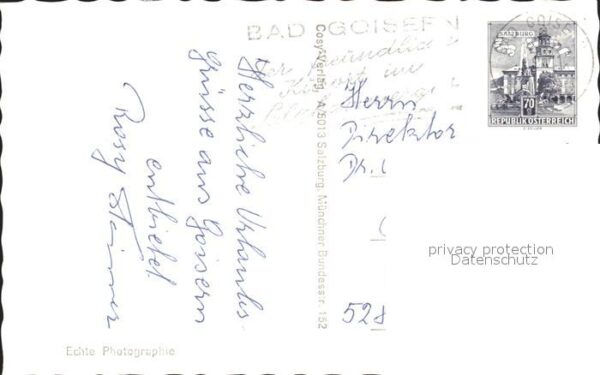 BAD GOISERN
Der freundliche
Kurort im
SALZBURG
70
REPUBLIK ÖSTERREICH
Herzliche Urlaubs-
grüsse aus Goisern
entbietet
Rosy
Cosy-Verlag, A 5013 Salzburg, Münchner Bundesstr. 152
Herrn
Direktor
Dr.
528
privacy protection
Datenschutz
Echte Photographie